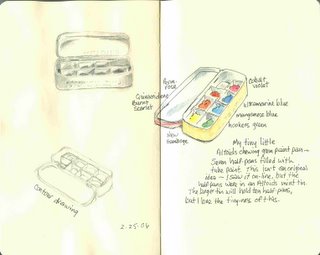 contour drawing
2.25.06
Perm.
rose
Quinacridone
Burnt
Scarlet
New
Gamboge
cobalt
violet
ultramarine blue
manganese blue
hookers green
My tiny little
Altoids chewing gum paint pan—
Seven half-pans filled with
tube paint. This isn't an original
idea — I saw it on-line, but the
half pans were in an Altoids mint tin.
The larger tin will hold ten half pans,
but I love the tiny-ness of this.